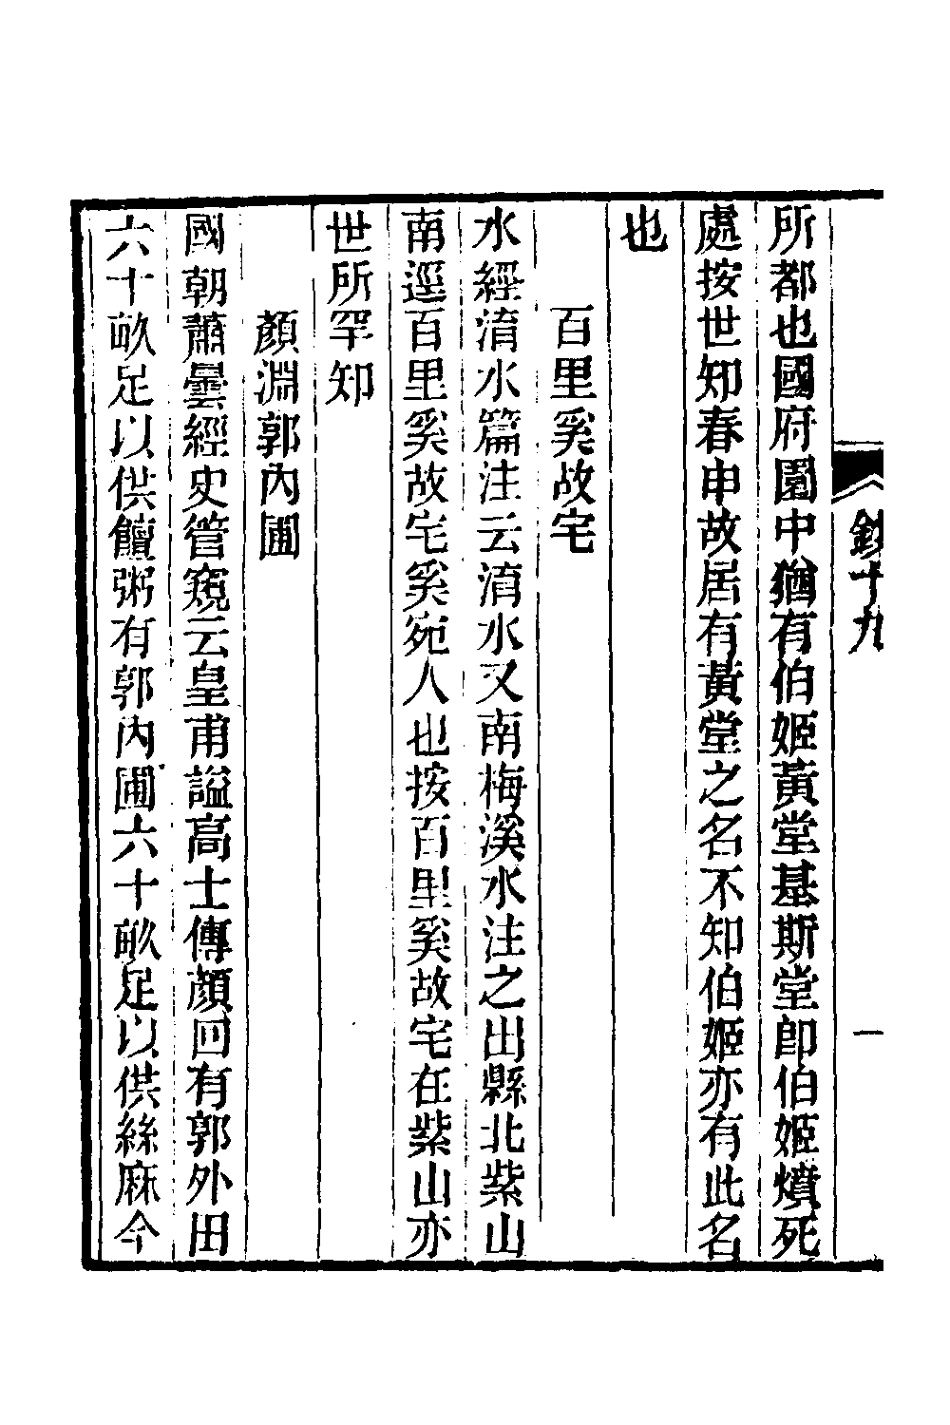 鈔十九
一
所都也國府園中猶有伯姬黃堂基斯堂卽伯姬燌死
處按世知春申故居有黃堂之名不知伯姬亦有此名
也
百里奚故宅
水經淯水篇注云淯水又南梅溪水注之出縣北紫山
南逕百里奚故宅奚宛人也按百里奚故宅在紫山亦
世所罕知
顏淵郭內圃
國朝蕭曇經史管窺云皇甫謐高士傳顏回有郭外田
六十畝足以供饘粥有郭內圃六十畝足以供絲麻今